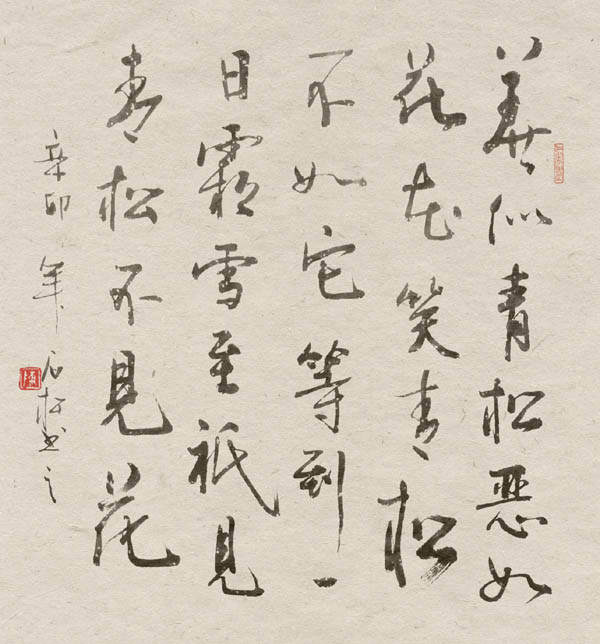 善似青松惡如
花花笑青松
不如它等到一
日霜雪至祇見
青松不見花
辛卯年石書之